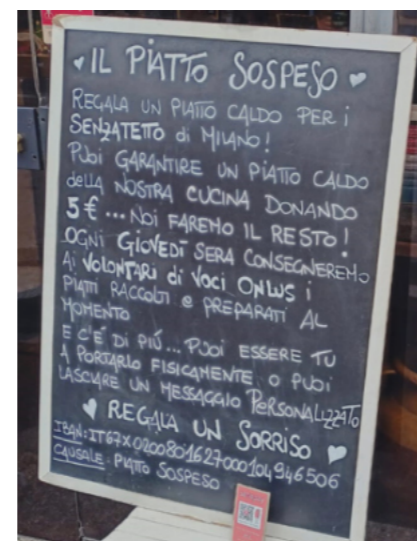 IL PIATTO SOSPESO
REGALA UN PIATTO CALDO PER i
SENZATETTO di MILANO!
PUOI GARANTIRE UN PIATTO CALDO
dellA NOSTRA CUCINA DONANDO
5 € ... NOI FAREMO IL RESTO!
OGNI GIOVEDÌ SERA CONSEGNEREMO
Ai VOLONTARI di VOCI ONLUS i
PIATTI RACCOLTI e PREPARATI AL
MOMENTO
E C'É DI PIÙ... PUOI ESSERE TU
A PORTARLO FISICAMENTE O PUOI
LASCIARE UN MESSAGGIO PERSONALIZZATO
REGALA UN SORRISO
IBAN: IT67X0200801627000104946506
CAUSALE: PIATTO SOSPESO